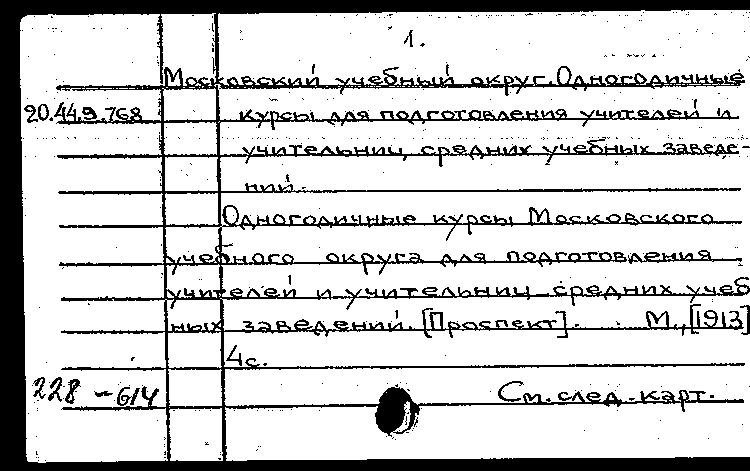 1.
Московский учебный округ. Одногодичные
20.44.9.768 курсы для подготовления учителей и
учительниц средних учебных заведе-
ний.
Одногодичные курсы Московского
учебного округа для подготовления
учителей и учительниц средних учеб
ных заведений. [Проспект]. М., [1913]
4с.
228-614 См. след. карт.